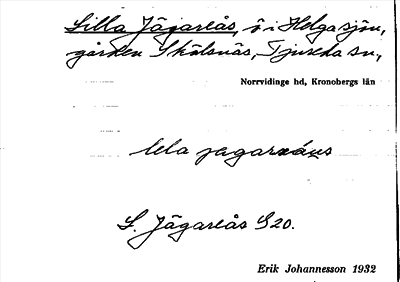 Lilla Jägareås, ö i Helgasjön,
gården Skälsnäs, Tjureda sn,
Norrvidinge hd, Kronobergs län
lela jagaråus
L. Jägareås S20.
Erik Johannesson 1932